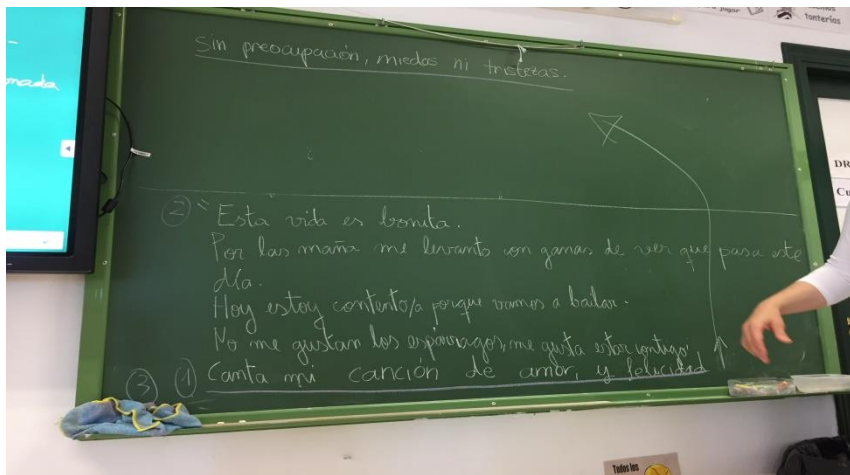 Sin preocupación, miedos ni tristezas.
② "Esta vida es bonita.
Por las maña me levanto con ganas de ver que pasa este
día.
Hoy estoy contento/a porque vamos a bailar.
No me gustan los espárragos, me gusta estar contigo"
③ ① Canta mi canción de amor, y felicidad
nada
jugar
tonterías
DR
Cu
Todos los